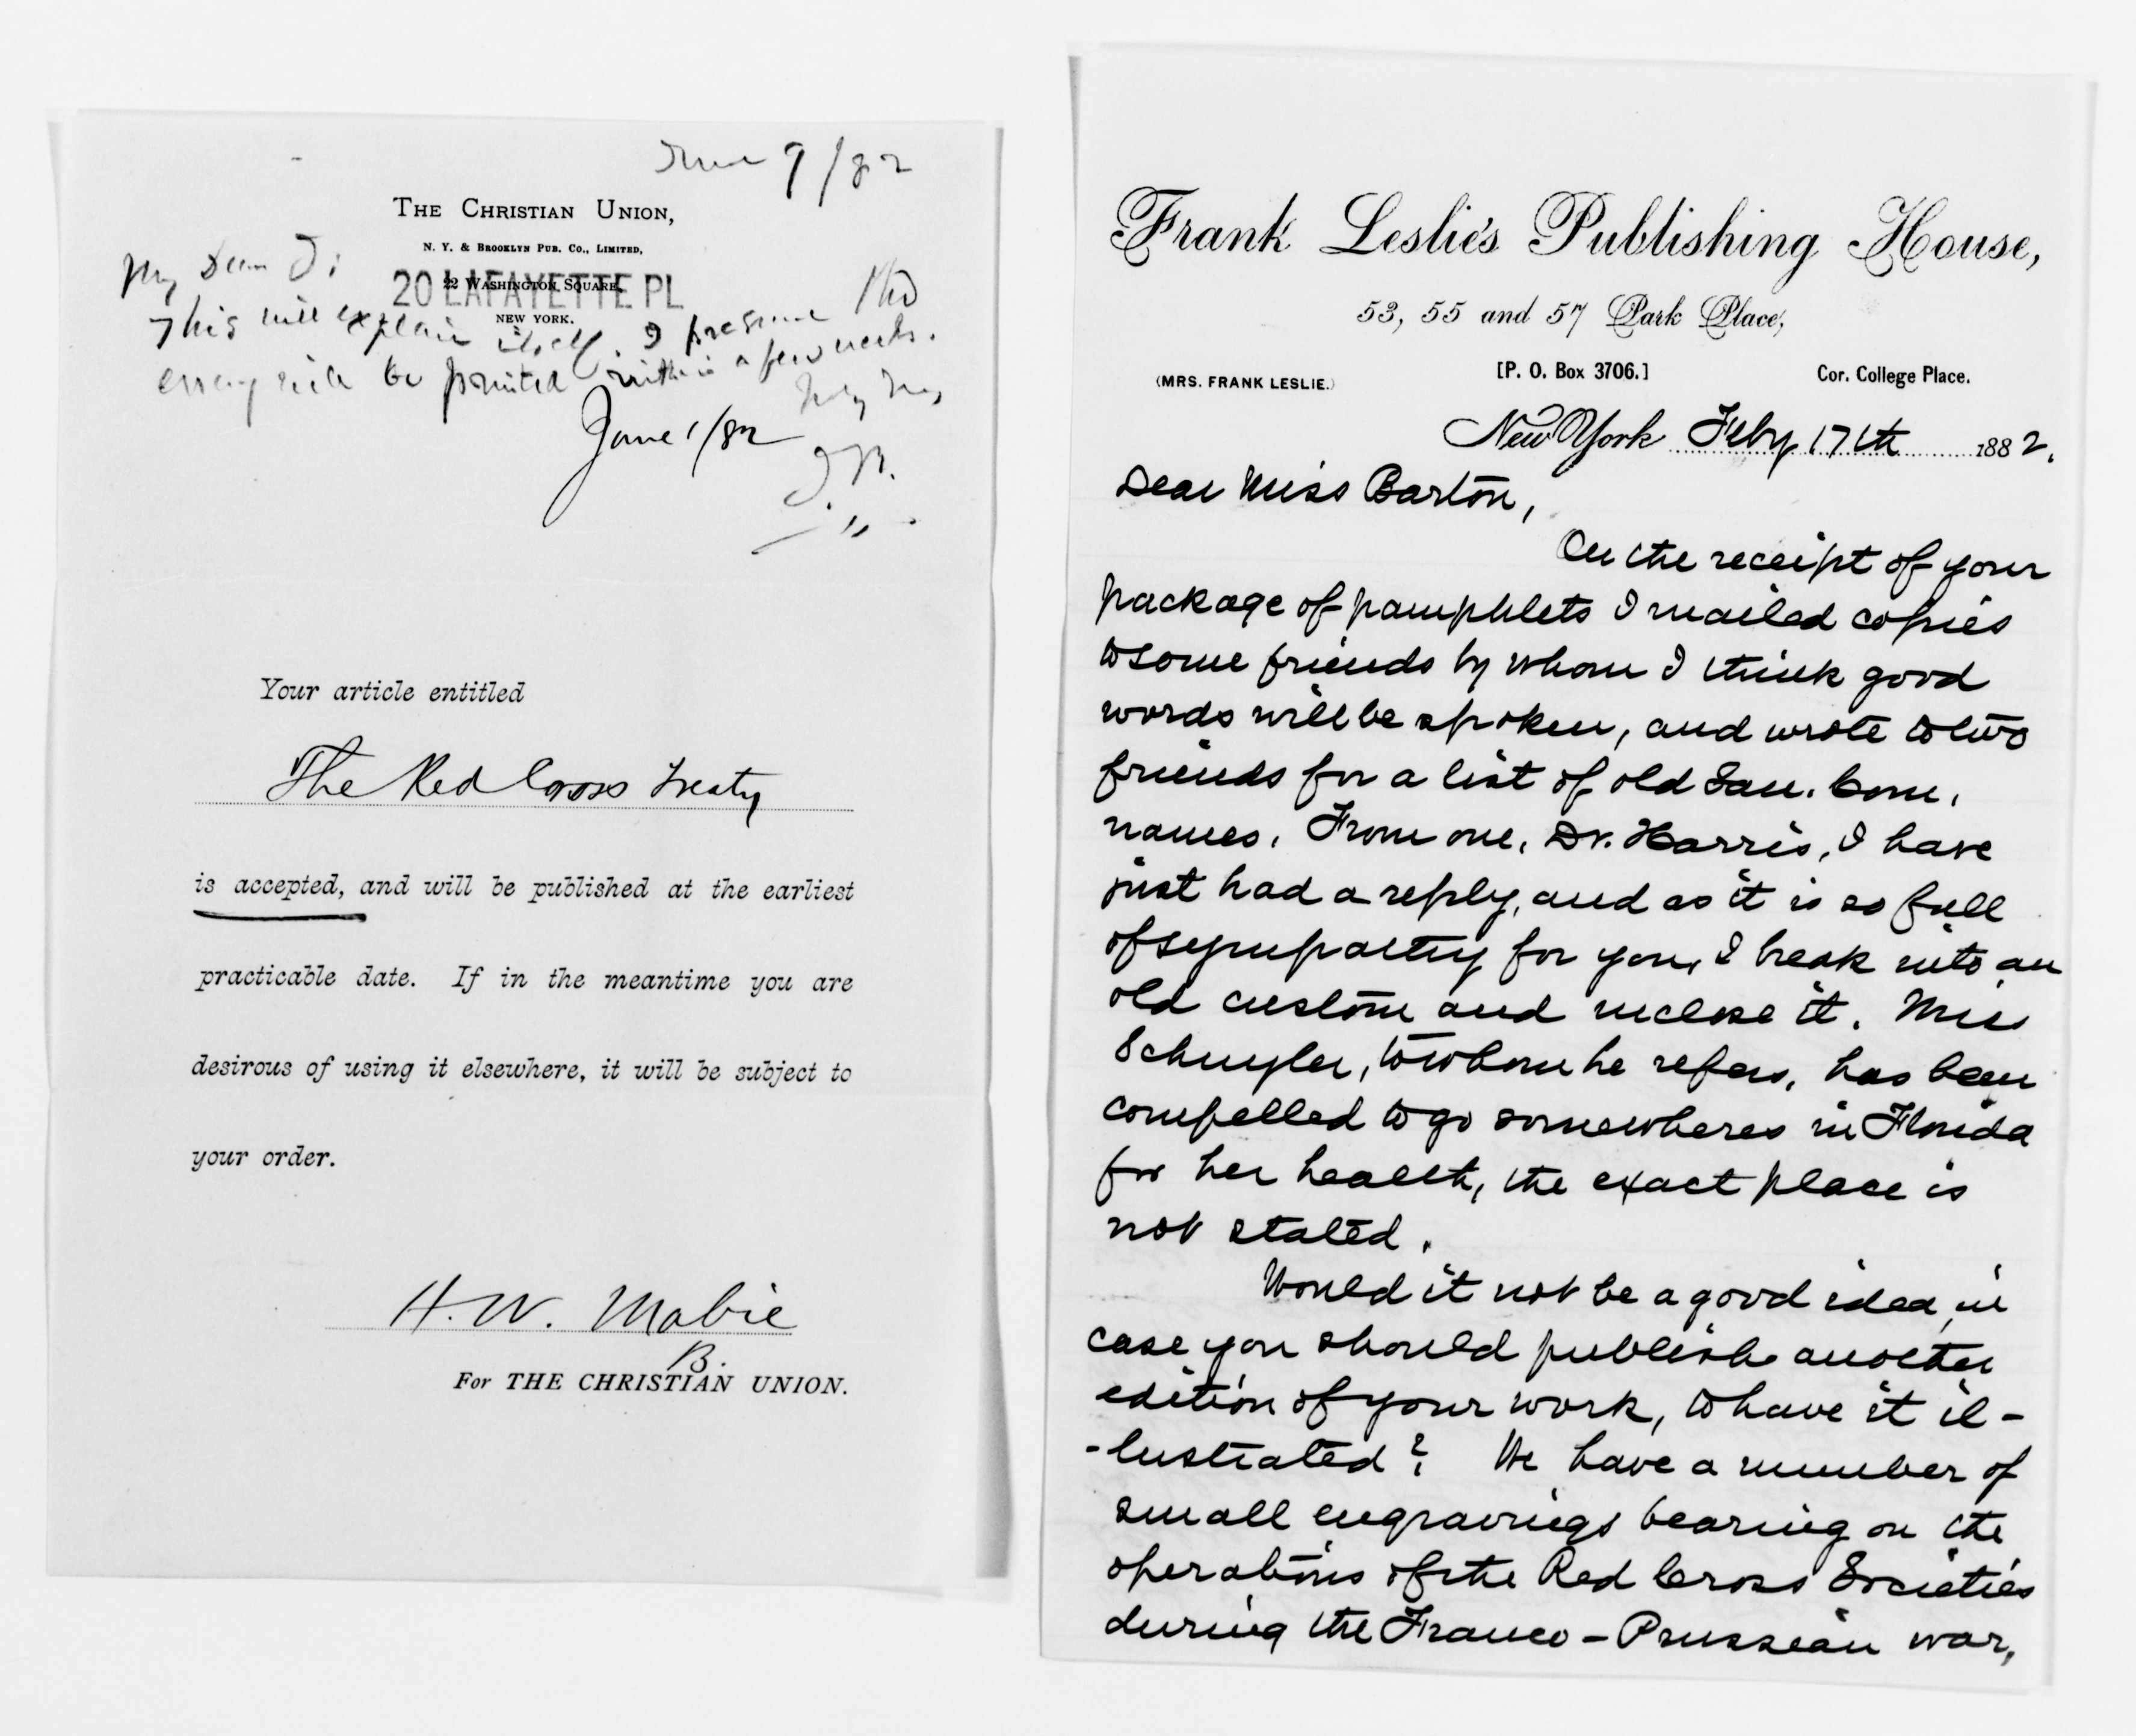 June 9/82
THE CHRISTIAN UNION,
N. Y. & BROOKLYN PUB. CO., LIMITED,
22 WASHINGTON SQUARE,
20 LAFAYETTE PL
NEW YORK.
My Dear
This will explain itself. I presume the
essay will be printed within a few weeks.
June 1/82
Your article entitled
The Red Cross Treaty
is accepted, and will be published at the earliest
practicable date. If in the meantime you are
desirous of using it elsewhere, it will be subject to
your order.
H. W. Mabie
B.
For THE CHRISTIAN UNION.
Frank Leslie's Publishing House,
53, 55 and 57 Park Place,
(MRS. FRANK LESLIE.) [P. O. Box 3706.] Cor. College Place.
New York Feby 17th 1882.
Dear Miss Barton,
On the receipt of your
package of pamphlets I mailed copies
to some friends by whom I think good
words will be spoken, and wrote to two
friends for a list of old San. Com.
names. From one, Dr. Harris, I have
just had a reply, and as it is so full
of sympathy for you, I break into an
old custom and inclose it. Miss
Schuyler, to whom he refers, has been
compelled to go somewheres in Florida
for her health, the exact place is
not stated.
Would it not be a good idea, in
case you should publish another
edition of your work, to have it il-
-lustrated? We have a number of
small engravings bearing on the
operations of the Red Cross Societies
during the Franco-Prussian war,